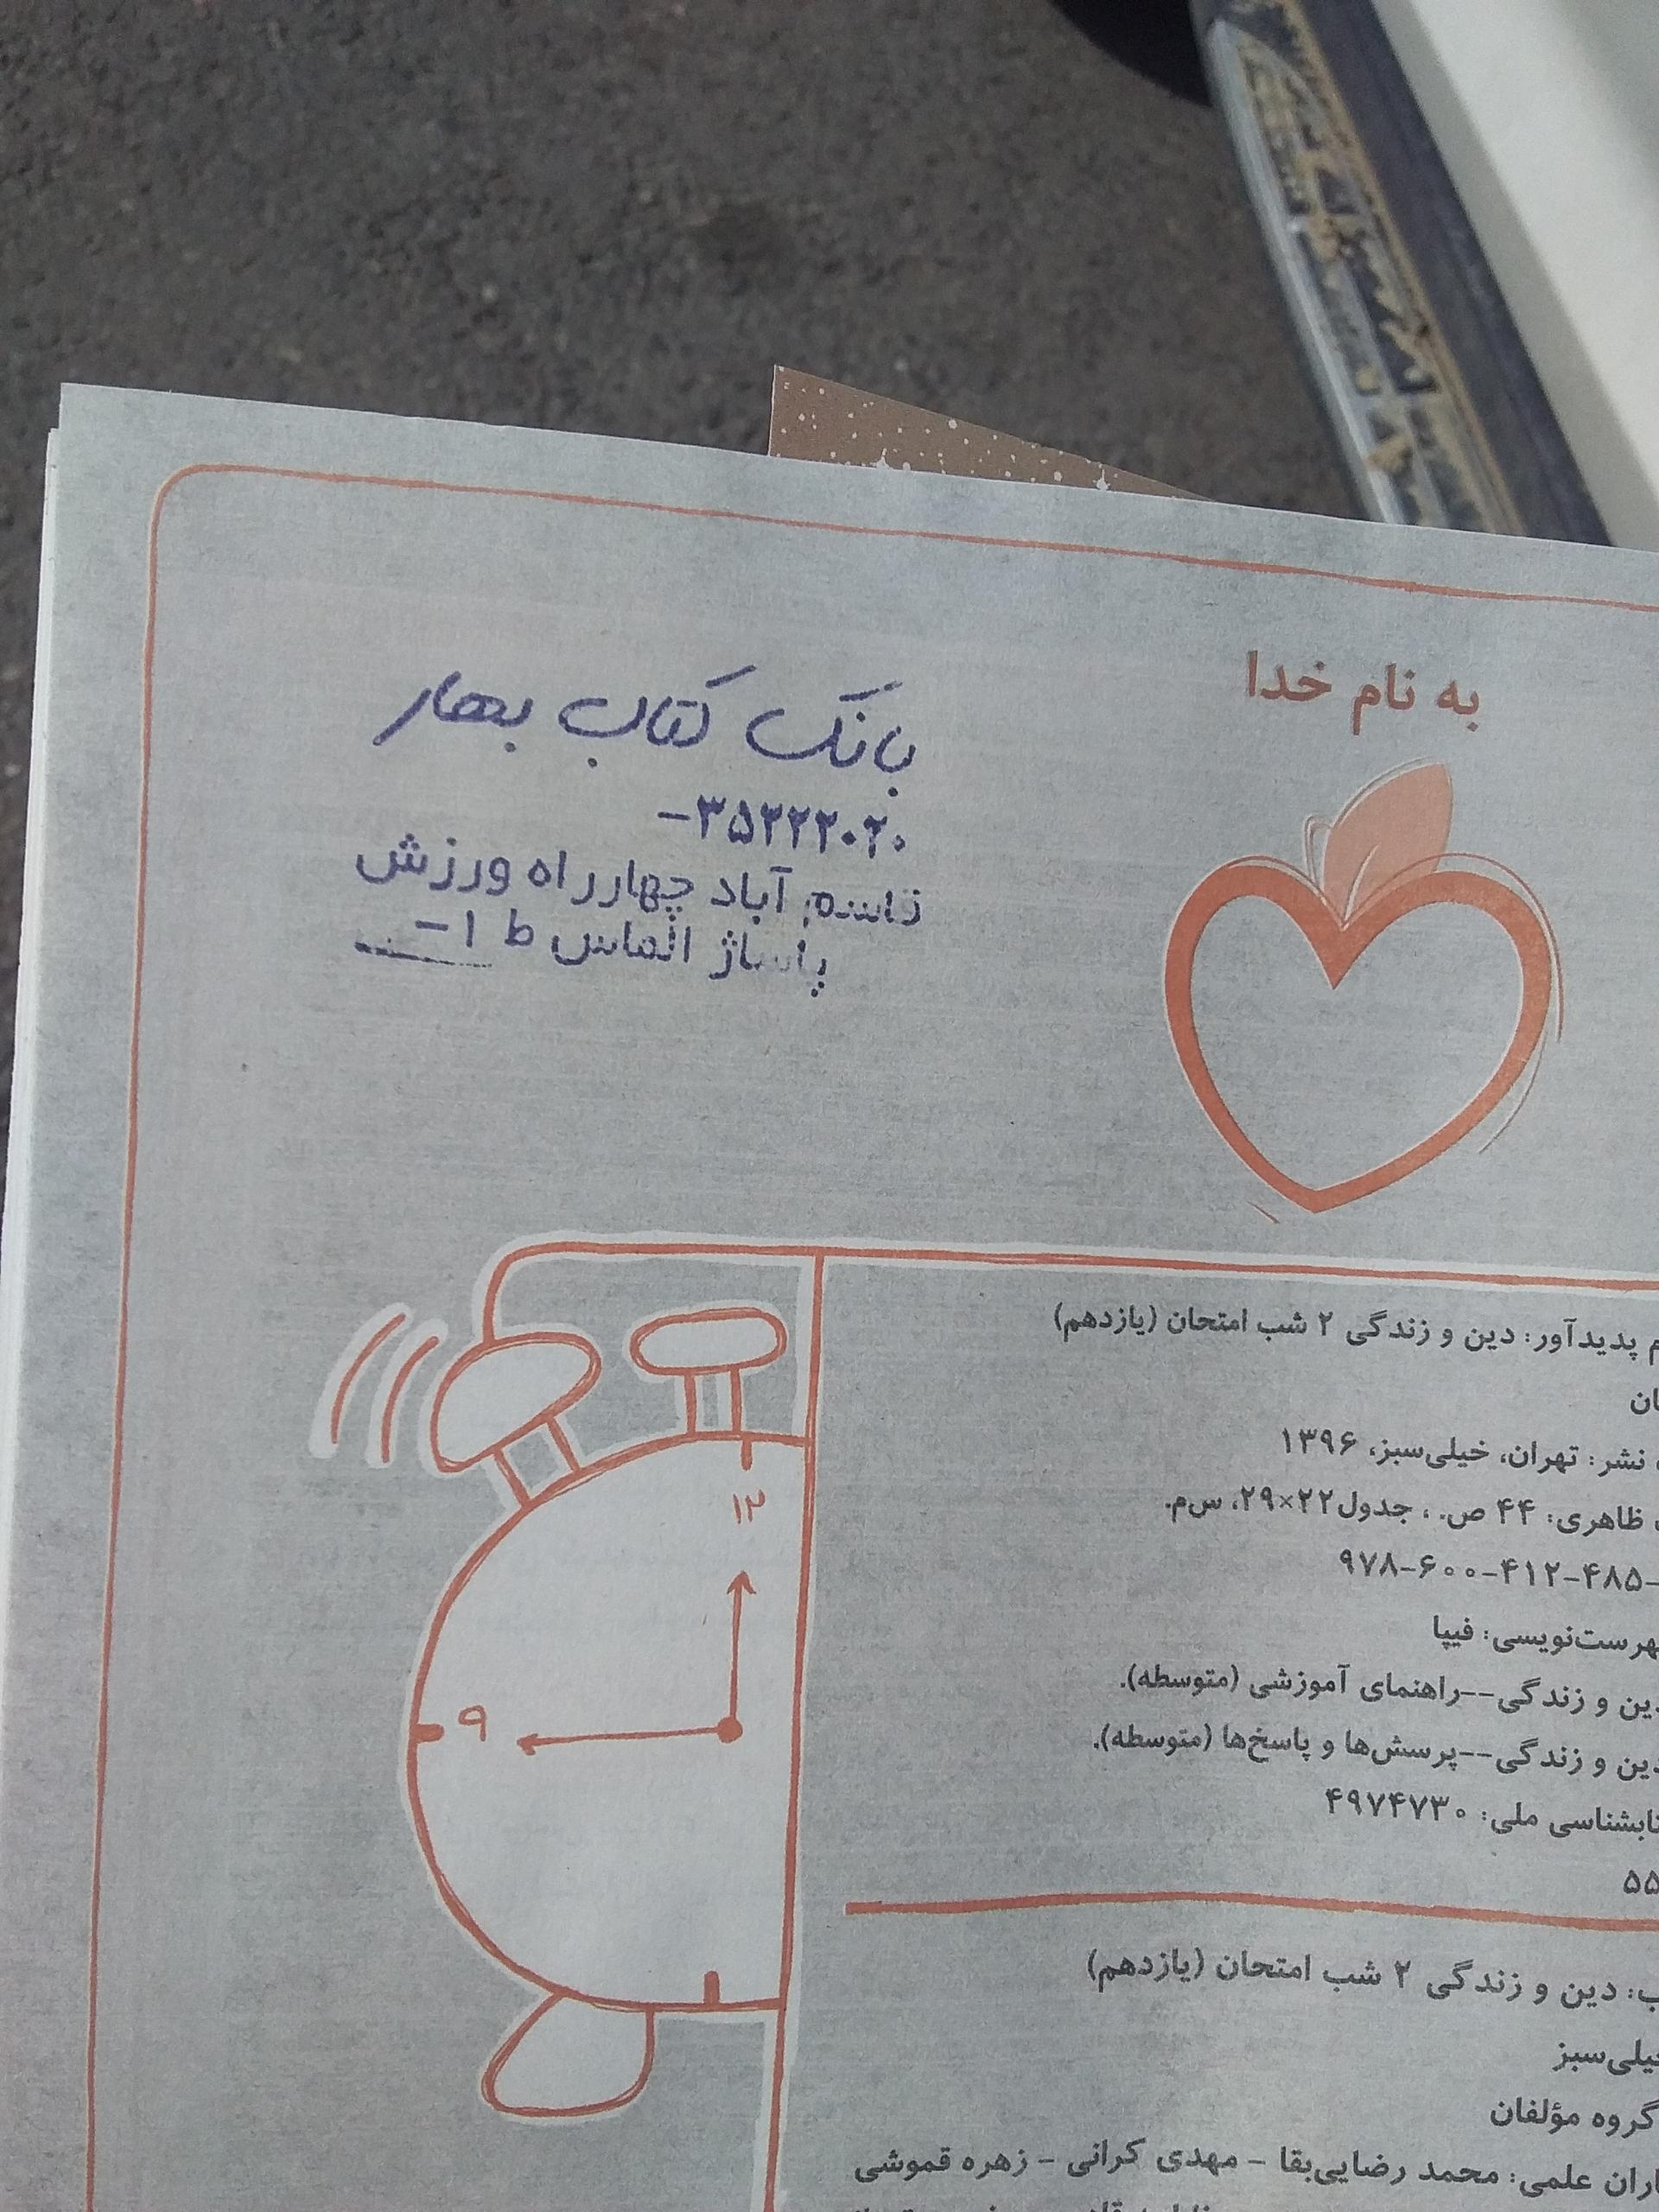 به نام خدا
بانک کتاب بهار
۳۵۲۲۲۰۲۰-
قاسم آباد چهارراه ورزش
پاساژ الماس ط ۱-
۱۲
۹
م پدیدآور: دین و زندگی ۲ شب امتحان (یازدهم)
ان
نشر: تهران، خیلی‌سبز، ۱۳۹۶
ظاهری: ۴۴ ص. ، جدول۲۲×۲۹، س‌م.
۹۷۸-۶۰۰-۴۱۲-۴۸۵-
هرست‌نویسی: فیپا
ین و زندگی--راهنمای آموزشی (متوسطه).
دین و زندگی--پرسش‌ها و پاسخ‌ها (متوسطه).
تابشناسی ملی: ۴۹۷۴۷۳۰
۵۵
ب: دین و زندگی ۲ شب امتحان (یازدهم)
یلی‌سبز
گروه مؤلفان
اران علمی: محمد رضایی‌بقا - مهدی کرانی - زهره قموشی